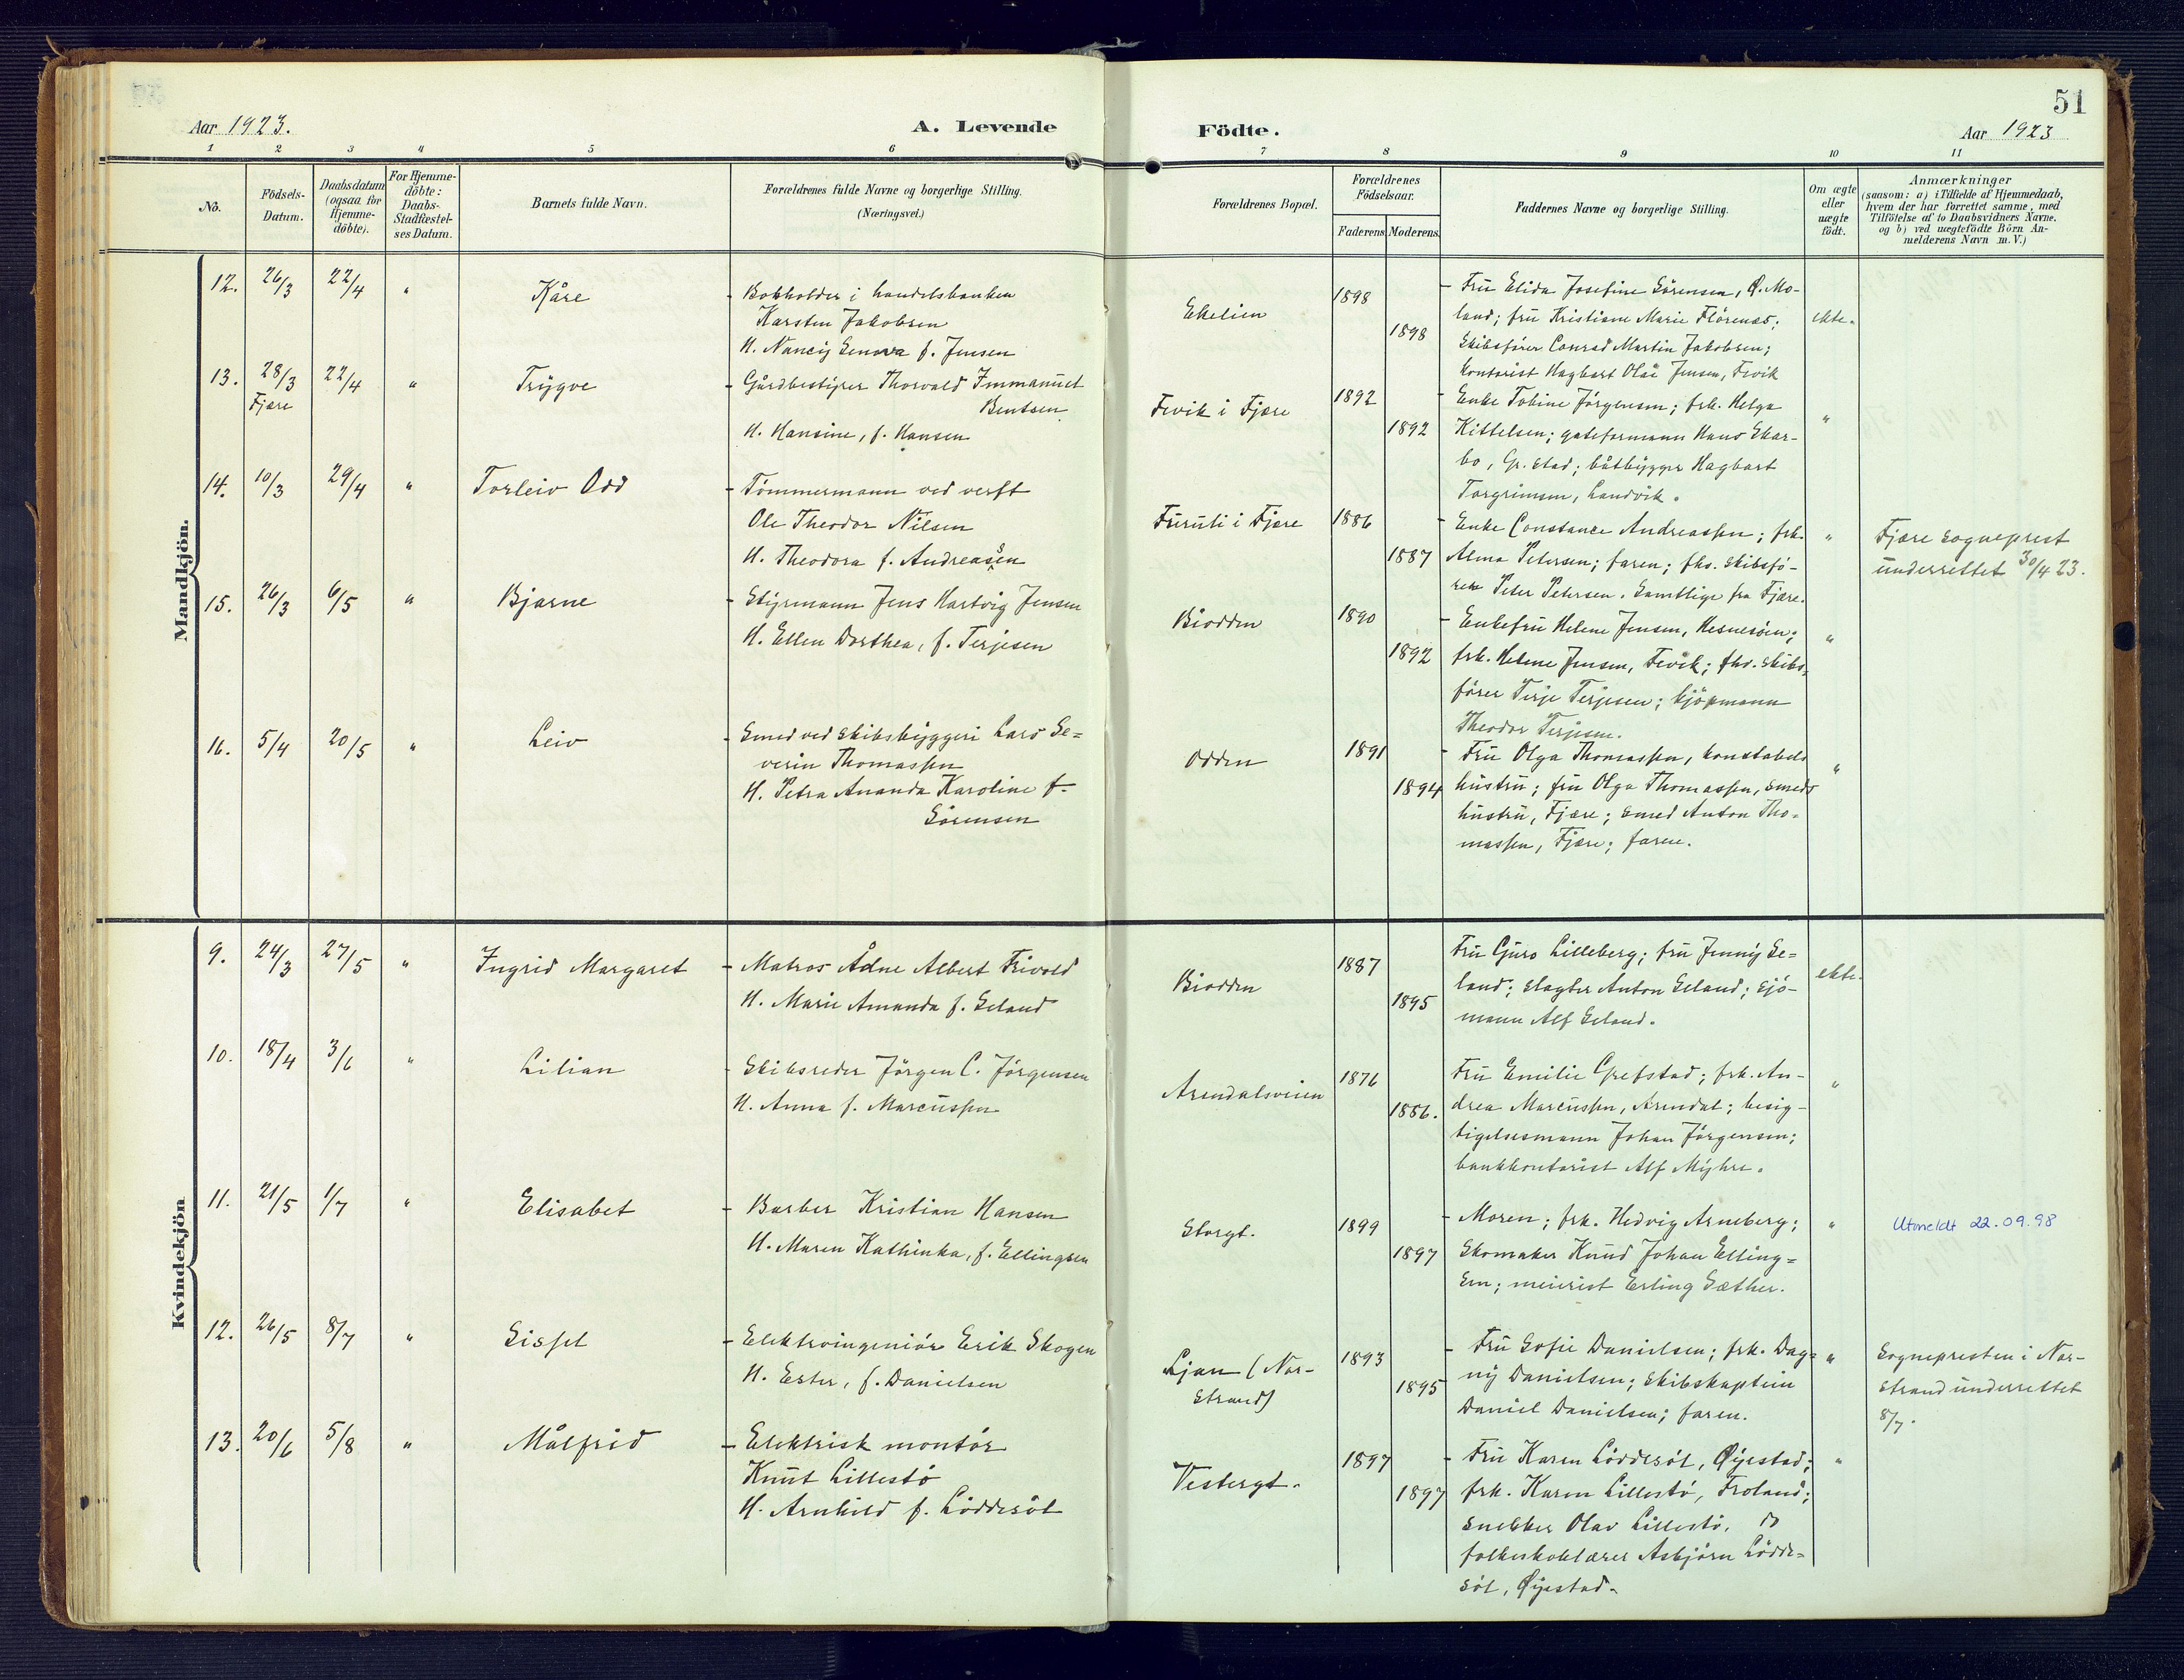 Aar 1923.
A. Levende
Födte.
51
Aar 1923
1 2 3 4 5 6 7 8 9 10 11
No.
Födsels-
Datum.
Daabsdatum
(ogsaa for
Hjemme-
döbte).
For Hjemme-
döbte:
Daabs-
Stadfæstel-
ses Datum.
Barnets fulde Navn.
Forældrenes fulde Navne og borgerlige Stilling.
(Næringsvei.)
Forældrenes Bopæl.
Forældrenes
Födselsaar.
Faderens. Moderens.
Faddernes Navne og borgerlige Stilling.
Om ægte
eller
uægte
födt.
Anmærkninger
(saasom: a) i Tilfælde af Hjemmedaab,
hvem der har forrettet samme, med
Tilföielse af to Daabsvidners Navne.
og b) ved uægtefödte Börn An-
melderens Navn m. V.)
Mandkjön.
12. 26/3 22/4 " Kåre
- Bokholder i handelsbanken
Karsten Jakobsen
H. Nancy Genova f. Jensen
Ekelien
1898
1898
- Fru Elida Josefine Sörensen, Ø. Mo-
land; fru Kristiane Marie Flörenæs;
Skibsförer Conrad Martin Jakobsen;
kontorist Hagbart Olai Jensen, Fevik
ekte.
13. 28/3 22/4 " Trygve
Fjære
- Gårdbestyrer Thorvald Immanuel
Bentsen
H. Hansine, f. Hansen
Fevik i Fjære
1892
1892
- Enke Tobine Jörgensen; frk. Helga
Kittelsen; gateformann Hans Skar-
bo, Gr.stad; båtbygger Hagbart
Torgrimsen, Landvik.
"
14. 10/3 29/4 " Torleiv Odd
- Tömmermann ved verft
Ole Theodor Nilsen
H. Theodora f. Andreassen
Furuli i Fjære
1886
1887
- Enke Constance Andreassen; frk.
Alma Petersen; faren; fhv. skibsfö-
rer Peter Petersen. Samtlige fra Fjære.
"
Fjære sogneprest
underrettet 30/4 23.
15. 26/3 6/5 " Bjarne
- Styrmann Jens Hartvig Jensen
H. Ellen Dorthea, f. Terjesen
Biodden
1890
1892
- Enkefru Helene Jensen, Hesnesöen;
frk. Helene Jensen, Fevik; fhv. skibs-
förer Terje Terjesen; kjöpmann
Theodor Terjesen.
"
16. 5/4 20/5 " Leiv
- Smed ved skibsbyggeri Lars Se=
verin Thomassen
H. Petra Ananda Karoline f.
Sörensen
Odden
1891
1894
- Fru Olga Thomassen, konstabels
hustru; fru Olga Thomassen, smeds
hustru, Fjære; smed Anton Tho-
massen, Fjære; faren.
"
Kvindekjön
9. 24/3 27/5 " Ingrid Margaret
- Matros Ådne Albert Frivold
H. Marie Amanda f. Seland
Biodden
1887
1895
Fru Guro Lilleberg; fru Jenny Se=
land; slagter Anton Seland; sjö-
mann Alf Seland.
ekte.
10. 18/4 3/6 " Lilian
- Skibsreder Jörgen C. Jörgensen
H. Anna f. Marcussen
Arendalsveien
1876
1886.
Fru Emilie Grefstad; frk. An-
drea Marcussen, Arendal; besig-
tigelsesmann Johan Jörgensen;
bankkontorist Alf Myhre.
"
11. 21/5 1/7 " Elisabet
- Barber Kristian Hansen
H. Maren Kathinka, f. Ellingsen
Storgt.
1899
1897
- Moren; frk. Hedvig Arneberg;
Skomaker Knud Johan Elling=
sen; meierist Erling Sæther.
"
Utmeldt 22.09.98
12. 26/5 8/7 " Sissel
- Elektroingeniör Erik Skogen
H. Ester, f. Danielsen
Ljan (Nor-
strand)
1893
1895
- Fru Sofie Danielsen; frk. Dag=
ny Danielsen; skibskaptein
Daniel Danielsen; faren.
"
Sognepresten i Nor-
strand underrettet
8/7.
13. 20/6 5/8 " Målfrid
- Elektrisk montör
Knut Lillestö
H. Arnhild f. Löddesöl
Vestergt.
1897
1897
- Fru Karen Löddesöl, Øyestad;
frk. Karen Lillestö, Froland;
snekker Olav Lillestö, do
folkeskolelærer Asbjörn Lödde=
söl, Øyestad.
"